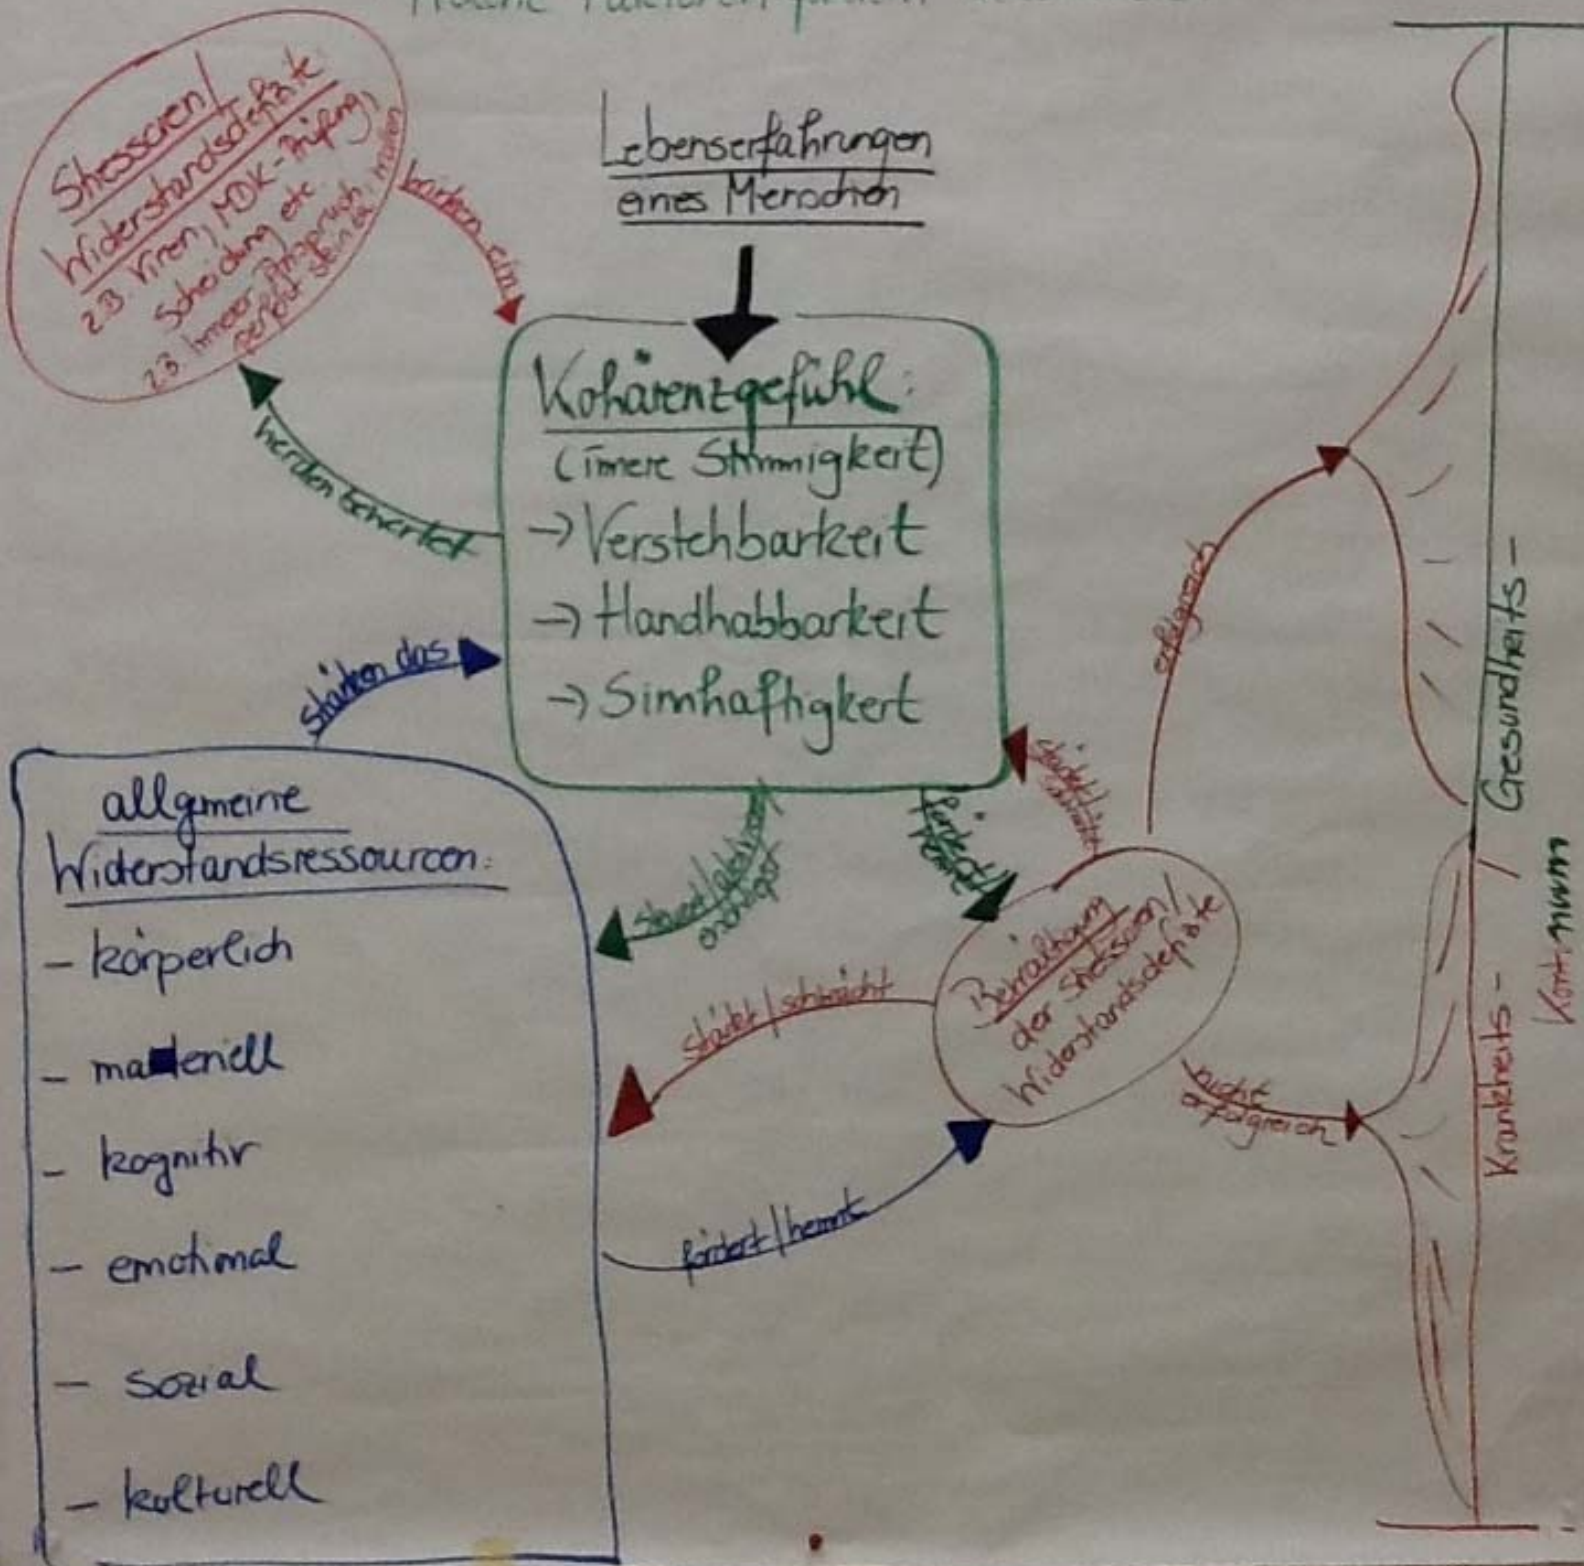 Welche Faktoren
Stressoren/
Widerstandsdefizite:
z.B. Viren, MDK-Prüfung,
Scheidung etc
z.B. immer Anspruch
perfekt sein zu
wirken ein
Lebenserfahrungen
eines Menschen
Kohärenzgefühl:
(innere Stimmigkeit)
→ Verstehbarkeit
→ Handhabbarkeit
→ Sinnhaftigkeit
werden bewertet
stärken das
allgemeine
Widerstandsressourcen:
- körperlich
- materiell
- kognitiv
- emotional
- sozial
- kulturell
fördert/
hemmt
stärkt/
schwächt
stärkt/schwächt
fördert/hemmt
Bewältigung
der Stressoren/
Widerstandsdefizite
erfolgreich
nicht
erfolgreich
Gesundheits-
/
Krankheits-
Kontinuum